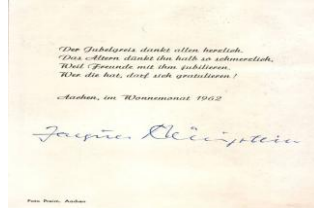 Der Jubelgreis dankt allen herzlich.
Das Altern dünkt ihn halb so schmerzlich,
Weil Freunde mit ihm jubilieren.
Wer die hat, darf sich gratulieren!
Aachen, im Wonnemonat 1962
Jacques Königstein
Foto Preim, Aachen